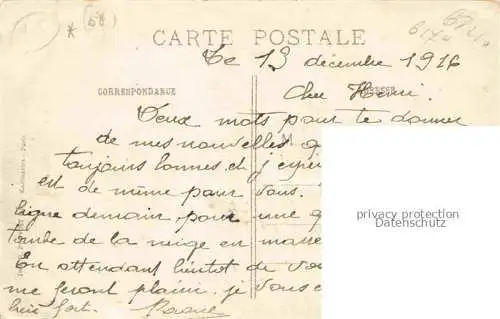 CARTE POSTALE
Le 13 décembre 1916
CORRESPONDANCE
Cher Henri.
Deux mots pour te donner
de mes nouvelles
toujours bonnes et j'espère
est de même pour vous.
ligne demain pour une
tombe de la neige en masse
En attendant bientôt de vos
me feront plaisir. je vous
bien fort.
privacy protection
Datenschutz